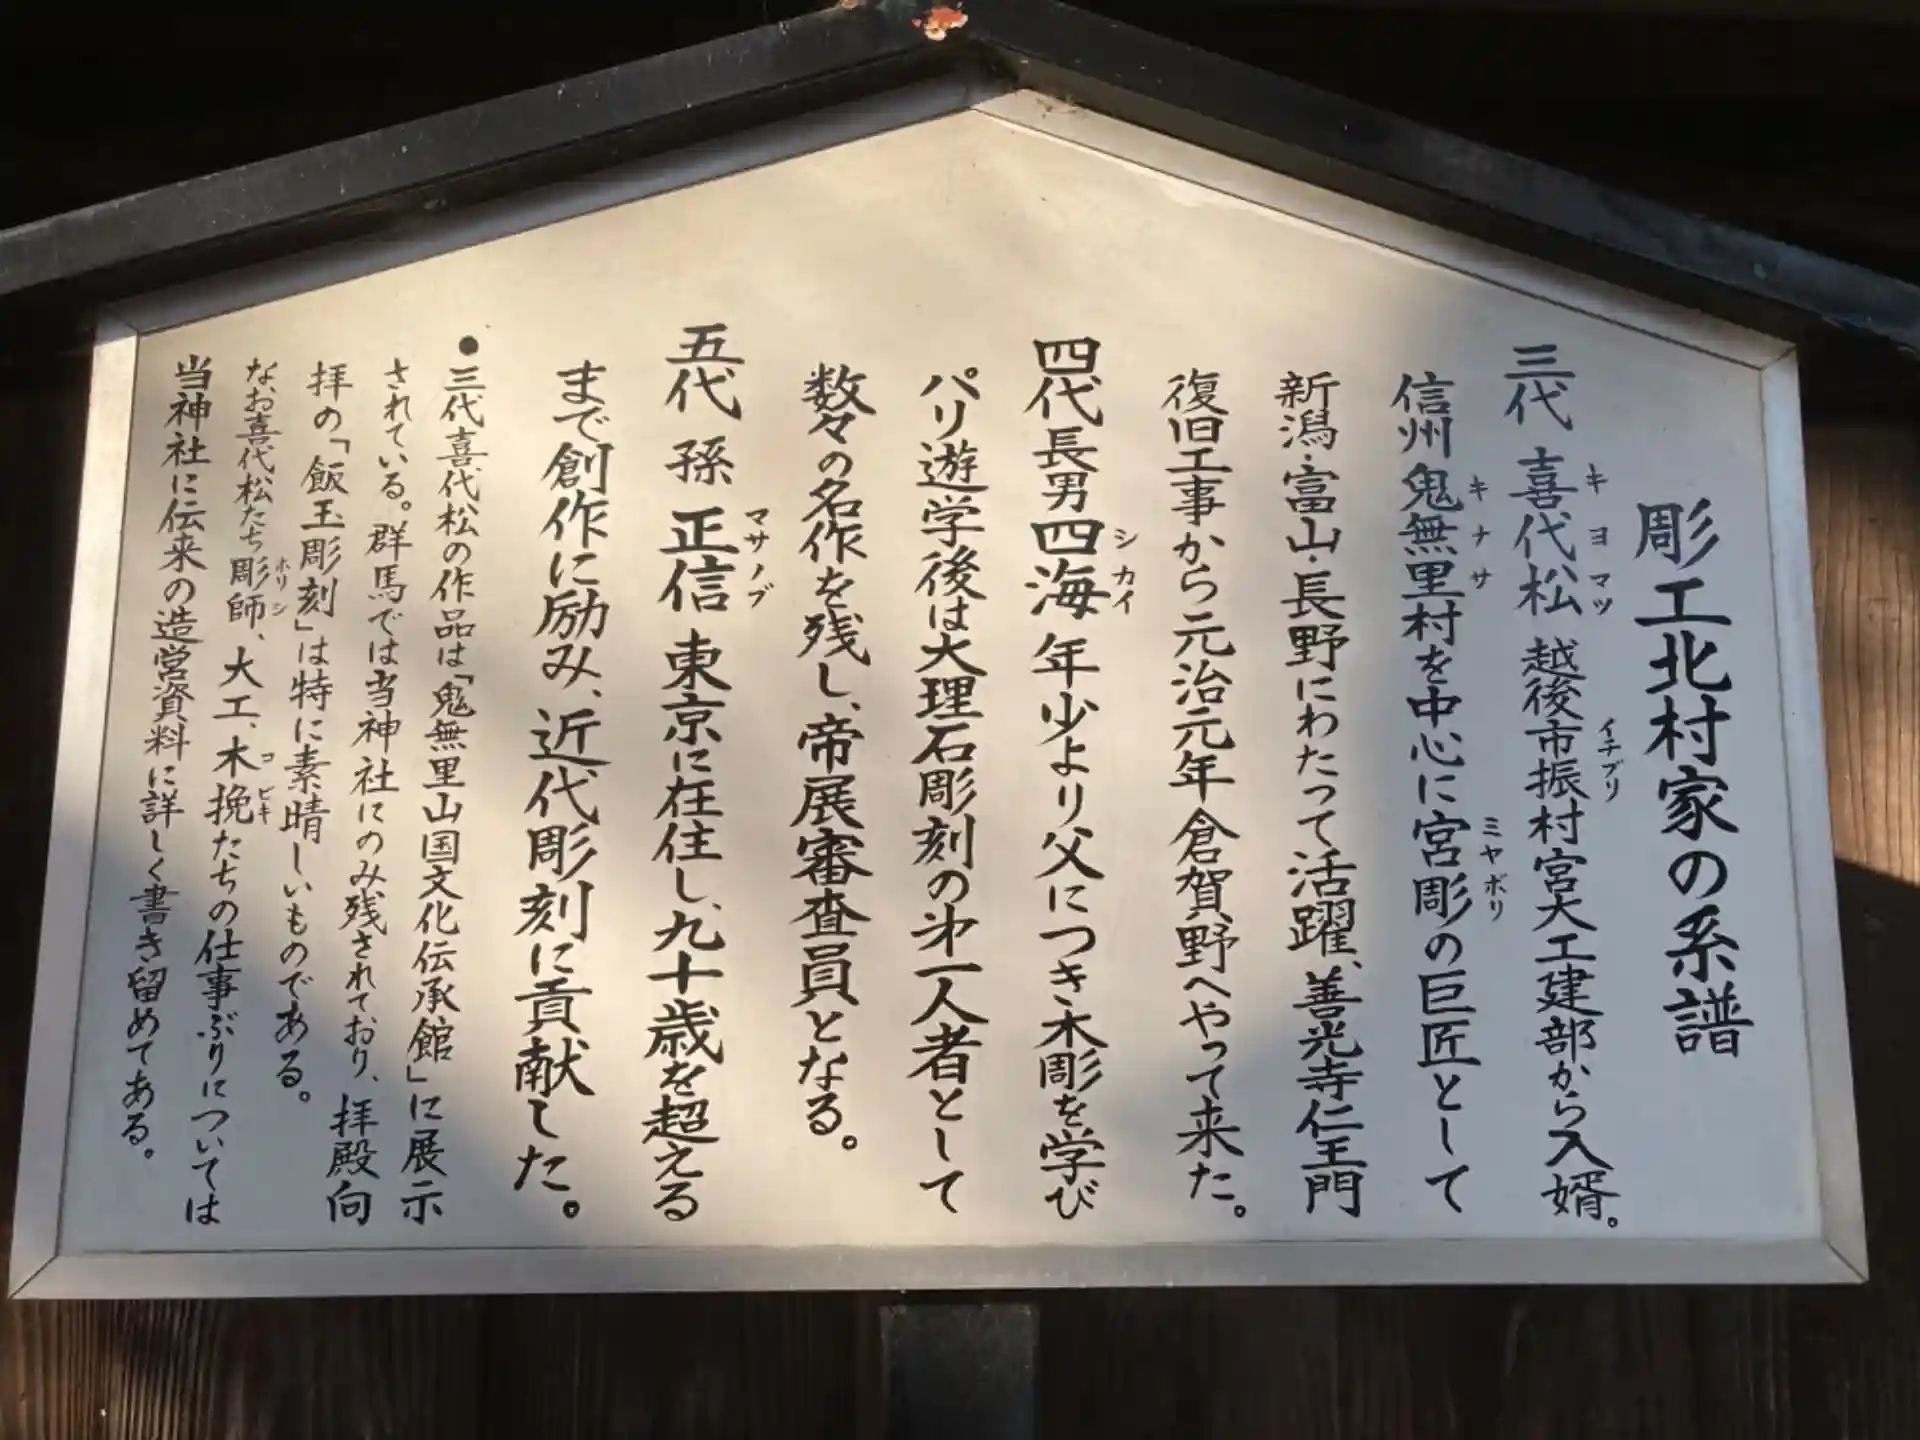 彫工北村家の系譜
三代 喜代松 越後市振村宮大工建部から入婿。
キヨマツ
イチブリ
信州鬼無里村を中心に宮彫の巨匠として
キナサ
ミヤボリ
新潟・富山・長野にわたって活躍、善光寺仁王門
復旧工事から元治元年倉賀野へやって来た。
四代長男四海 年少より父につき木彫を学び
シカイ
パリ遊学後は大理石彫刻の第一人者として
数々の名作を残し、帝展審査員となる。
五代 孫 正信 東京に在住し、九十歳を超える
マサノブ
まで創作に励み、近代彫刻に貢献した。
●三代喜代松の作品は「鬼無里山国文化伝承館」に展示
されている。群馬では当神社にのみ残されており、拝殿向
拝の「飯玉彫刻」は特に素晴しいものである。
なお喜代松たち彫師、大工、木挽たちの仕事ぶりについては
ホリシ
コビキ
当神社に伝来の造営資料に詳しく書き留めてある。